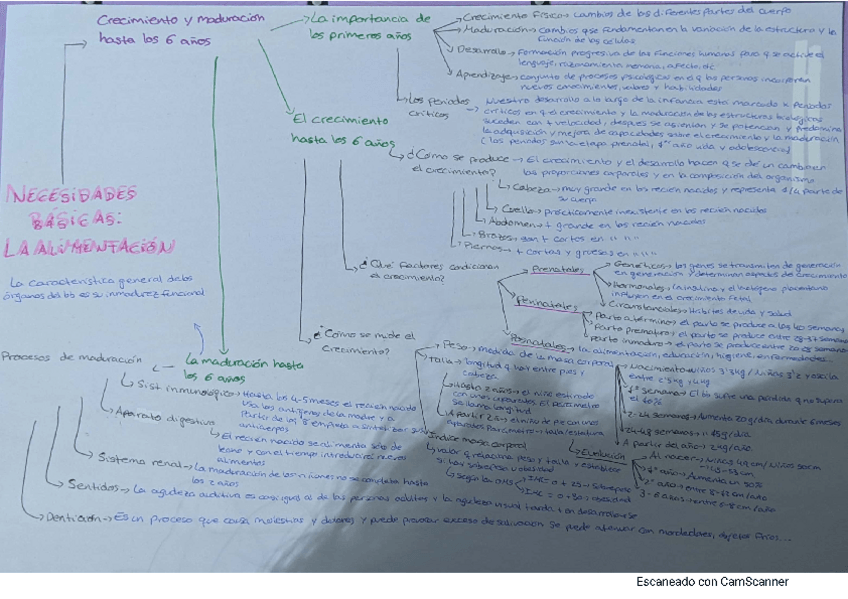 Crecimiento y maduración
hasta los 6 años
La importancia de
los primeros años
Crecimiento Físico → cambios de los diferentes partes del cuerpo
Maduración → cambios que fundamentan en la variación de la estructura y la
función de las células
Desarrollo → Formación progresiva de las funciones humanas para q se active el
lenguaje, razonamiento, memoria, afecto, etc
Aprendizaje → conjunto de procesos psicológicos en q las personas incorporan
nuevos conocimientos, valores y habilidades
Los periodos
críticos
Nuestro desarrollo a lo largo de la infancia está marcado x periodos
críticos en q el crecimiento y la maduración de las estructuras biológicas
suceden con + velocidad, después se asientan y se potencian y predomina
la adquisición y mejora de capacidades sobre el crecimiento y la maduración
(los periodos son la etapa prenatal, 1er año vida y adolescencia)
El crecimiento
hasta los 6 años
¿Cómo se produce
el crecimiento?
El crecimiento y el desarrollo hacen q se dé un cambio en
las proporciones corporales y en la composición del organismo
Cabeza → muy grande en los recién nacidos y representa 1/4 parte de
su cuerpo
Cuello → prácticamente inexistente en los recién nacidos
Abdomen → + grande en los recién nacidos
Brazos → son + cortos en " " "
Piernas → + cortas y gruesas en " " "
NECESIDADES
BÁSICAS:
LA ALIMENTACIÓN
La característica general de los
órganos del bb es su inmadurez funcional
¿Qué factores condicionan
el crecimiento?
Prenatales
Genéticos → los genes se transmiten de generación
en generación y determinan aspectos del crecimiento
Hormonales → la insulina y el lactógeno placentario
influyen en el crecimiento fetal
Circunstanciales → Hábitos de vida y salud
Perinatales
Parto a término → el parto se produce a las 40 semanas
Parto prematuro → el parto se produce entre 28-37 semanas
Parto inmaduro → el parto se produce entre 20-28 semanas
Postnatales → la alimentación, educación, higiene, enfermedades...
¿Cómo se mide el
crecimiento?
Peso → medida de la masa corporal
Nacimiento → Niños 3'3kg / Niñas 3'2 y oscila
entre 2'5kg y 4kg
1ª semana → El bb sufre una pérdida q no supera
el 10%
2-24 semanas → Aumenta 20g/día durante 6 meses
24-48 semanas → 15g/día
A partir del año → 2kg/año
Talla → longitud q hay entre pies y
cabeza
Hasta 2 años → el niño estirado
con unos aparatos. El pediómetro
se llama longitud
A partir 2 → el niño de pie con unos
aparatos → talla/estatura
Índice masa corporal
valor q relaciona peso y talla y establece
si hay sobrepeso u obesidad
según la OMS
IMC = o + 25 → sobrepeso
IMC = o + 30 → obesidad
Evolución
Al nacer → Niñas 49 cm / Niños 50 cm
1er año → Aumenta un 50%
3-6 años → entre 6-8 cm/año
La maduración hasta
los 6 años
Procesos de maduración
Sist. inmunológico → Hasta los 4-5 meses el recién nacido
usa los antígenos de la madre y a
partir de los 8 empieza a sintetizar sus
anticuerpos
Aparato digestivo
El recién nacido se alimenta solo de
leche y con el tiempo introducirá nuevos
alimentos
Sistema renal → La maduración de los riñones no se completa hasta
los 2 años
Sentidos → La agudeza auditiva es casi igual al de las personas adultas y la agudeza visual tarda + en desarrollarse
Dentición → Es un proceso que causa molestias y dolores y puede provocar exceso de salivación. Se puede atenuar con mordedores, objetos fríos...
Escaneado con CamScanner